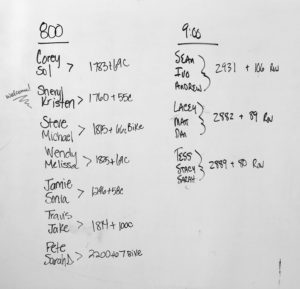 800
Corey
Sol > 1783+69C
welcome!
Sheryl
Kristen > 1760+55C
Steve
Michael > 1815+66 Bike
Wendy
Melissa > 1825+69C
Jamie
Sonia > 1296+58C
Travis
Jake > 1814+100C
Pete
Sarah D > 2200+67 Bike
9:00
SEAN
IVO
ANDREW } 2931 + 106 RW
LACEY
MAT
DAN } 2882 + 89 RW
TESS
STACY
SARAH } 2889 + 80 RW